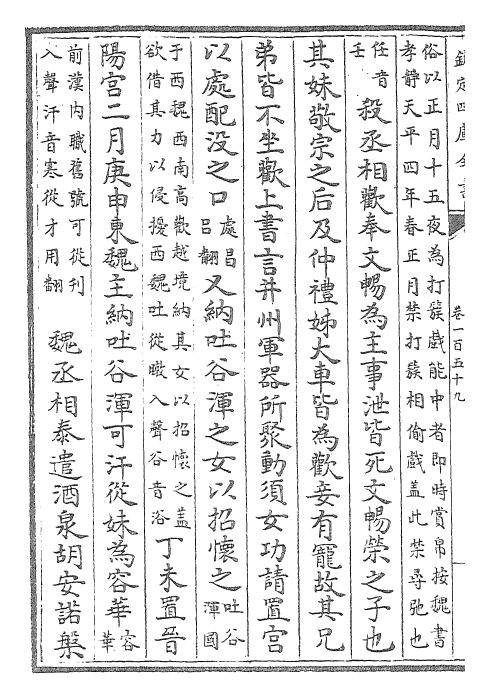 欽定四庫全書
卷一百五十九
俗以正月十五夜為打簇戲能中者即時賞帛按魏書
孝静天平四年春正月禁打簇相偷戲蓋此禁尋弛也
任音
壬
殺丞相歡奉文暢為主事泄皆死文暢榮之子也
其妹敬宗之后及仲禮姊大車皆為歡妾有寵故其兄
弟皆不坐歡上書言并州軍器所聚動須女功請置宫
以處配没之口
處昌
吕翻
又納吐谷渾之女以招懷之
吐谷
渾國
于西魏西南高歡越境納其女以招懷之蓋
欲借其力以侵擾西魏吐從暾入聲谷音浴
丁未置晉
陽宫二月庚申東魏主納吐谷渾可汗從妹為容華
容
華
前漢内職舊號可從刋
入聲汗音寒從才用翻
魏丞相泰遣酒泉胡安諾槃